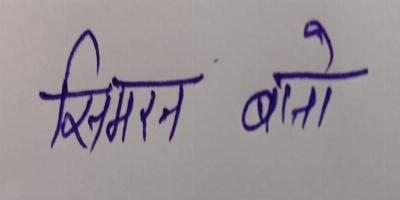 सिमरन बानो